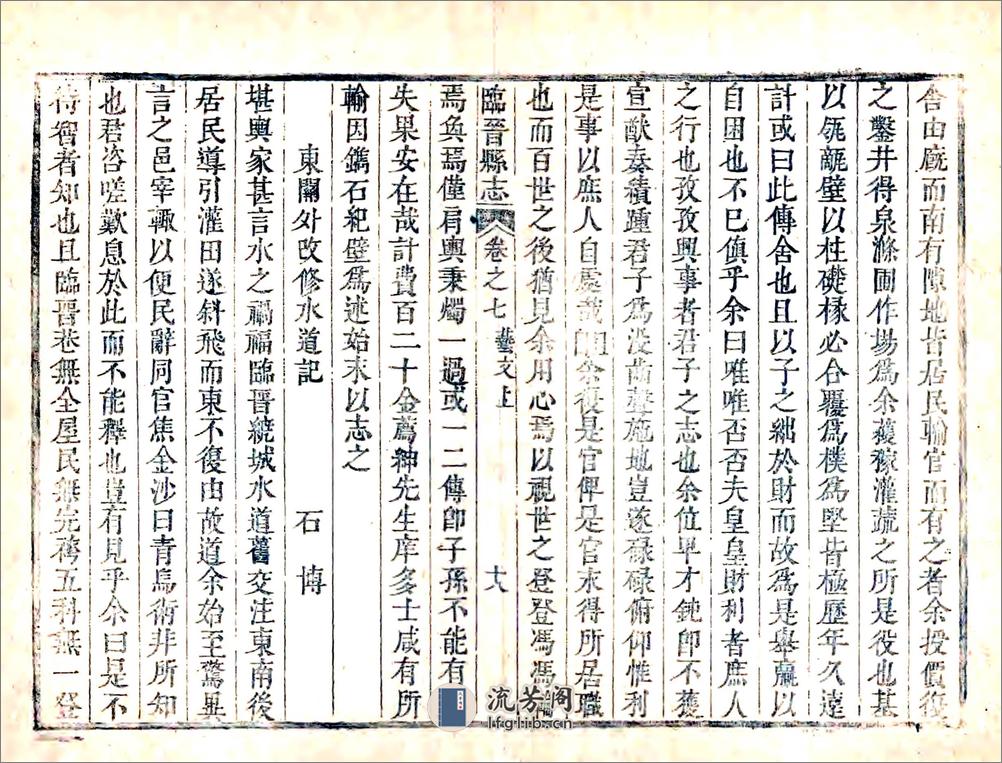 舍由廐而南有隙地皆居民輸官而有之者余授價役
之鑿井得泉滌圃作場為余穫稼灌蔬之所是役也甚
以瓴甋壁以柱礎椽必合覆為樸為堅皆極歷年久遠
計或曰此傳舍也且以子之絀於財而故為是舉羸以
自困也不已傎乎余曰唯唯否否夫皇皇財利者庶人
之行也孜孜興事者君子之志也余位卑才鈍卽不獲
宣猷奏積踵君子為沒齒聲施地豈遂碌碌俯仰惟利
是事以庶人自處哉余復是官俾是官求得所居職
也而百世之後猶見余用心焉以視世之登登馮馮
臨晉縣志 卷之七 藝文上 十八
焉奐焉僅肩輿秉燭一過或一二傳卽子孫不能有
失果安在哉計費百二十金薦紳先生庠多士咸有所
輸因鐫石紀壁為述始末以志之
東關外改修水道記 石博
堪輿家甚言水之禍福臨晉繞城水道舊交注東南後
居民導引灌田遂斜飛而東不復由故道余始至驚異
言之邑宰輙以便民辭同官焦金沙曰青烏術非所知
也君咨嗟歎息於此而不能釋也豈有見乎余曰是不
待智者知也且臨晉巷無全屋民無完蓆五科無一登
流芳閣
lfglib.cn